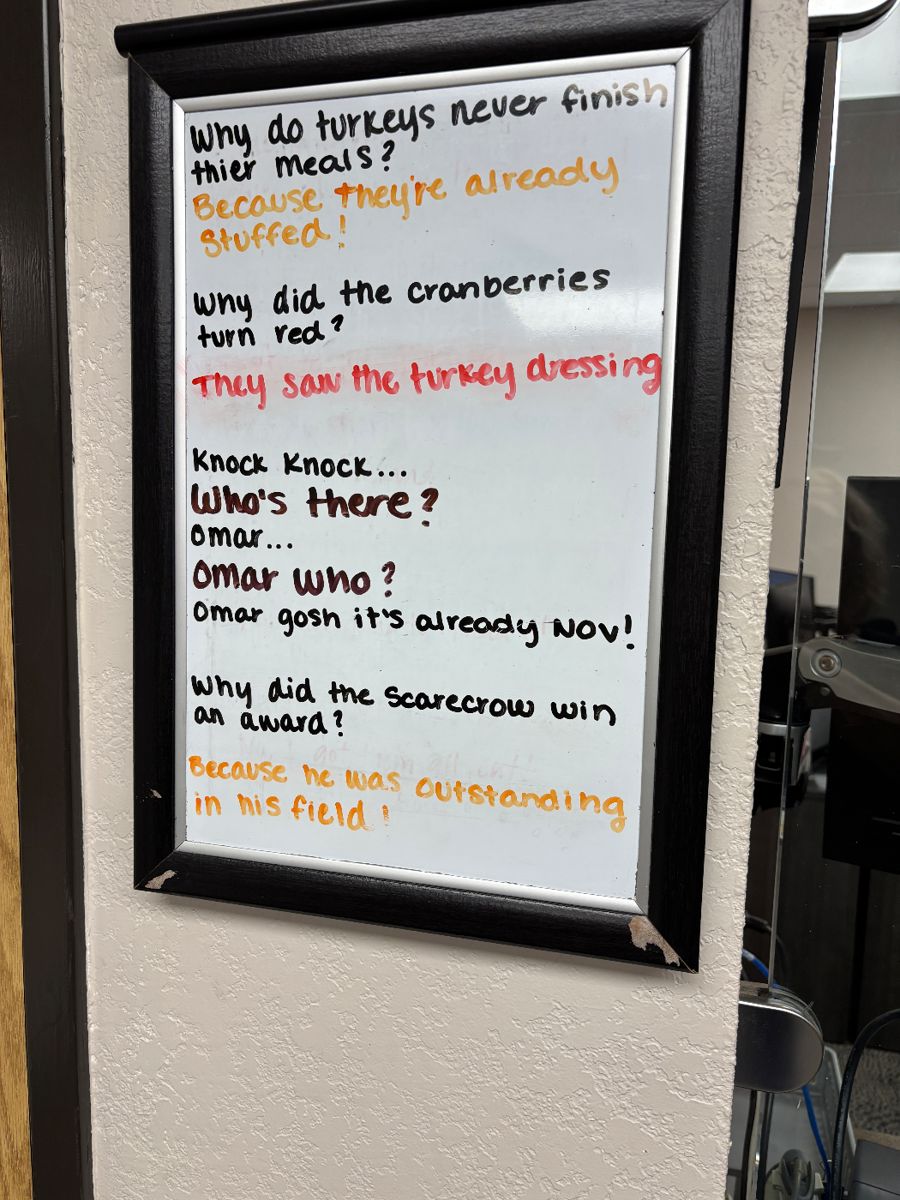 Why do turkeys never finish
thier meals?
Because they're already
stuffed!
Why did the cranberries
turn red?
They saw the turkey dressing
Knock Knock...
Who's there?
Omar...
Omar who?
Omar gosh it's already NOV!
Why did the scarecrow win
an award?
Because he was outstanding
in his field!